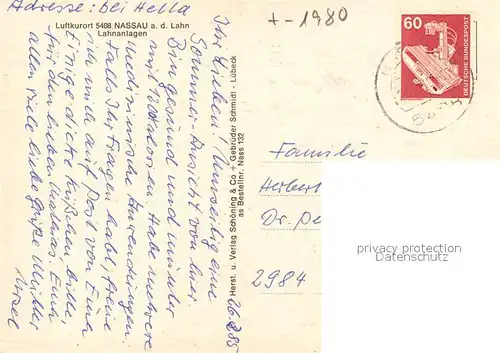 Adresse: bei Hella
Luftkurort 5408 NASSAU a. d. Lahn
Lahnanlagen
+-1980
60
DEUTSCHE BUNDESPOST
Ihr Lieben! Umseitig eine
Sommer-Ansicht von hier.
Bin gesund und munter
mit. Habe mehrere
medizinische Anwendungen.
Falls Ihr Fragen habt, freue
ich mich auf Post von Euch
Einige dicke Küßchen bitte,
für den lieben Mathias. Euch
allen viele liebe Grüße
26.2.85
Herst. u. Verlag Schöning & Co + Gebrüder Schmidt - Lübeck
as Bestellnr. Nass 132
Familie
Herbert
Dr. Pe
2984
privacy protection
watermark